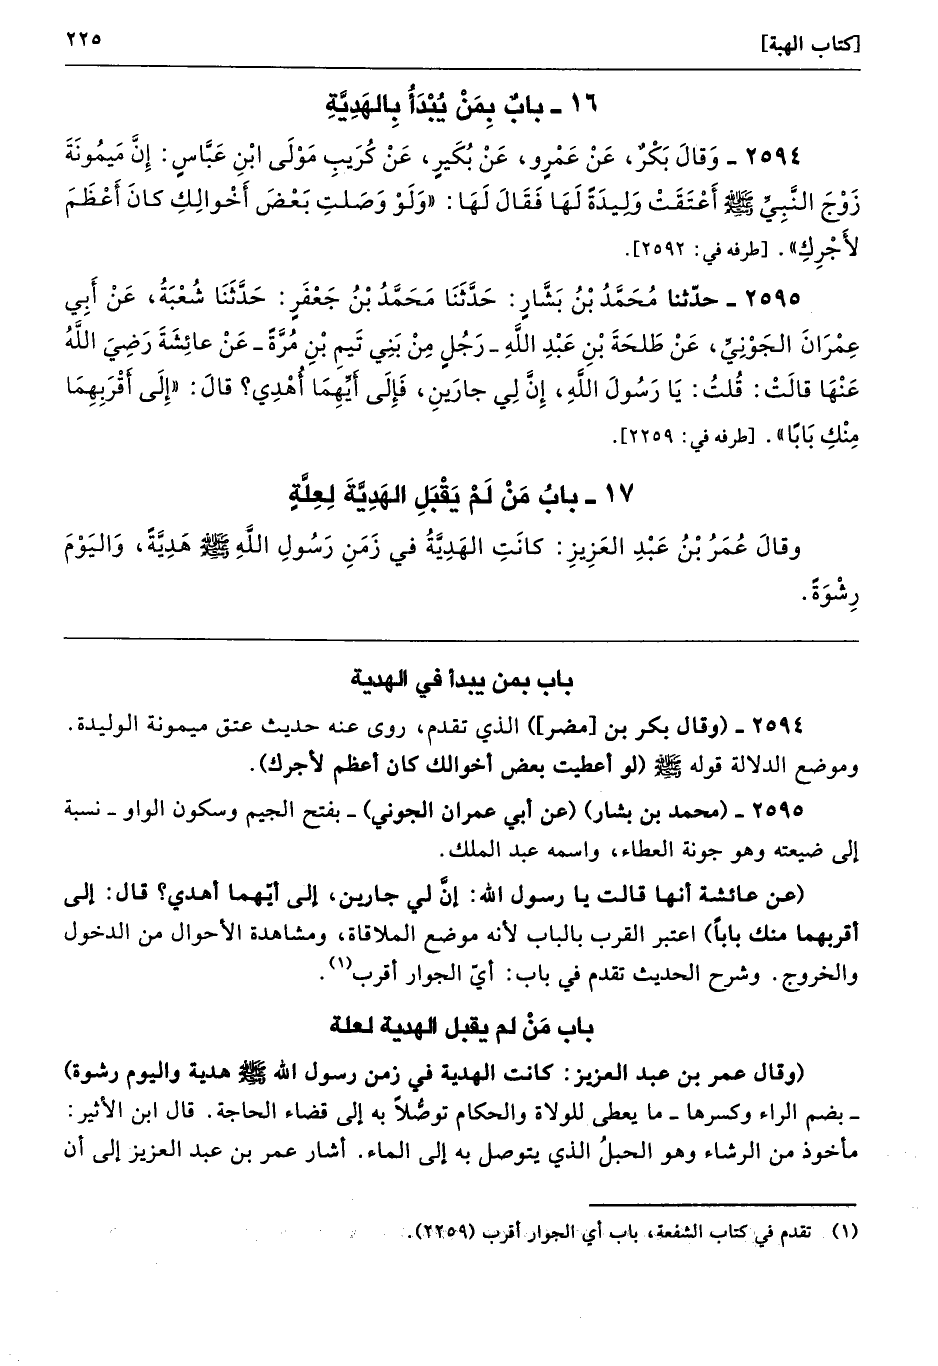 [كتاب الهبة] ٢٢٥
١٦ ـ بابٌ بِمَنْ يُبْدَأُ بِالهَدِيَّةِ
٢٥٩٤ ـ وَقالَ بَكْرٌ، عَنْ عَمْرٍو، عَنْ بُكَيرٍ، عَنْ كُرَيبٍ مَوْلَى ابْنِ عَبَّاسٍ: إِنَّ مَيمُونَةَ
زَوْجَ النَّبِيِّ ﷺ أَعْتَقَتْ وَلِيدَةً لَهَا فَقَالَ لَهَا: «وَلَوْ وَصَلتِ بَعْضَ أَخْوالِكِ كانَ أَعْظَمَ
لأَجْرِكِ». [طرفه في: ٢٥٩٢].
٢٥٩٥ ـ حدّثنا مُحَمَّدُ بْنُ بَشَّارٍ: حَدَّثَنَا مَحَمَّدُ بْنُ جَعْفَرٍ: حَدَّثَنَا شُعْبَةُ، عَنْ أَبِي
عِمْرَانَ الجَوْنِيِّ، عَنْ طَلحَةَ بْنِ عَبْدِ اللَّهِ ـ رَجُلٍ مِنْ بَنِي تَيمِ بْنِ مُرَّةَ ـ عَنْ عائِشَةَ رَضِيَ اللَّهُ
عَنْهَا قالَتْ: قُلتُ: يَا رَسُولَ اللَّهِ، إِنَّ لِي جارَينِ، فَإِلَى أَيِّهِمَا أُهْدِي؟ قالَ: «إِلَى أَقْرَبِهِمَا
مِنْكِ بَابًا». [طرفه في: ٢٢٥٩].
١٧ ـ بابُ مَنْ لَمْ يَقْبَلِ الهَدِيَّةَ لِعِلَّةٍ
وقالَ عُمَرُ بْنُ عَبْدِ العَزِيزِ: كانَتِ الهَدِيَّةُ في زَمَنِ رَسُولِ اللَّهِ ﷺ هَدِيَّةً، وَاليَوْمَ
رِشْوَةً.
باب بمن يبدأ في الهدية
٢٥٩٤ ـ (وقال بكر بن [مضر]) الذي تقدم، روى عنه حديث عتق ميمونة الوليدة.
وموضع الدلالة قوله ﷺ (لو أعطيت بعض أخوالك كان أعظم لأجرك).
٢٥٩٥ ـ (محمد بن بشار) (عن أبي عمران الجوني) ـ بفتح الجيم وسكون الواو ـ نسبة
إلى ضيعته وهو جونة العطاء، واسمه عبد الملك.
(عن عائشة أنها قالت يا رسول الله: إنَّ لي جارين، إلى أيّهما أهدي؟ قال: إلى
أقربهما منك باباً) اعتبر القرب بالباب لأنه موضع الملاقاة، ومشاهدة الأحوال من الدخول
والخروج. وشرح الحديث تقدم في باب: أيّ الجوار أقرب(١).
باب مَنْ لم يقبل الهدية لعلة
(وقال عمر بن عبد العزيز: كانت الهدية في زمن رسول الله ﷺ هدية واليوم رشوة)
ـ بضم الراء وكسرها ـ ما يعطى للولاة والحكام توصُّلاً به إلى قضاء الحاجة. قال ابن الأثير:
مأخوذ من الرشاء وهو الحبلُ الذي يتوصل به إلى الماء. أشار عمر بن عبد العزيز إلى أن
(١) تقدم في كتاب الشفعة، باب أي الجوار أقرب (٢٢٥٩).